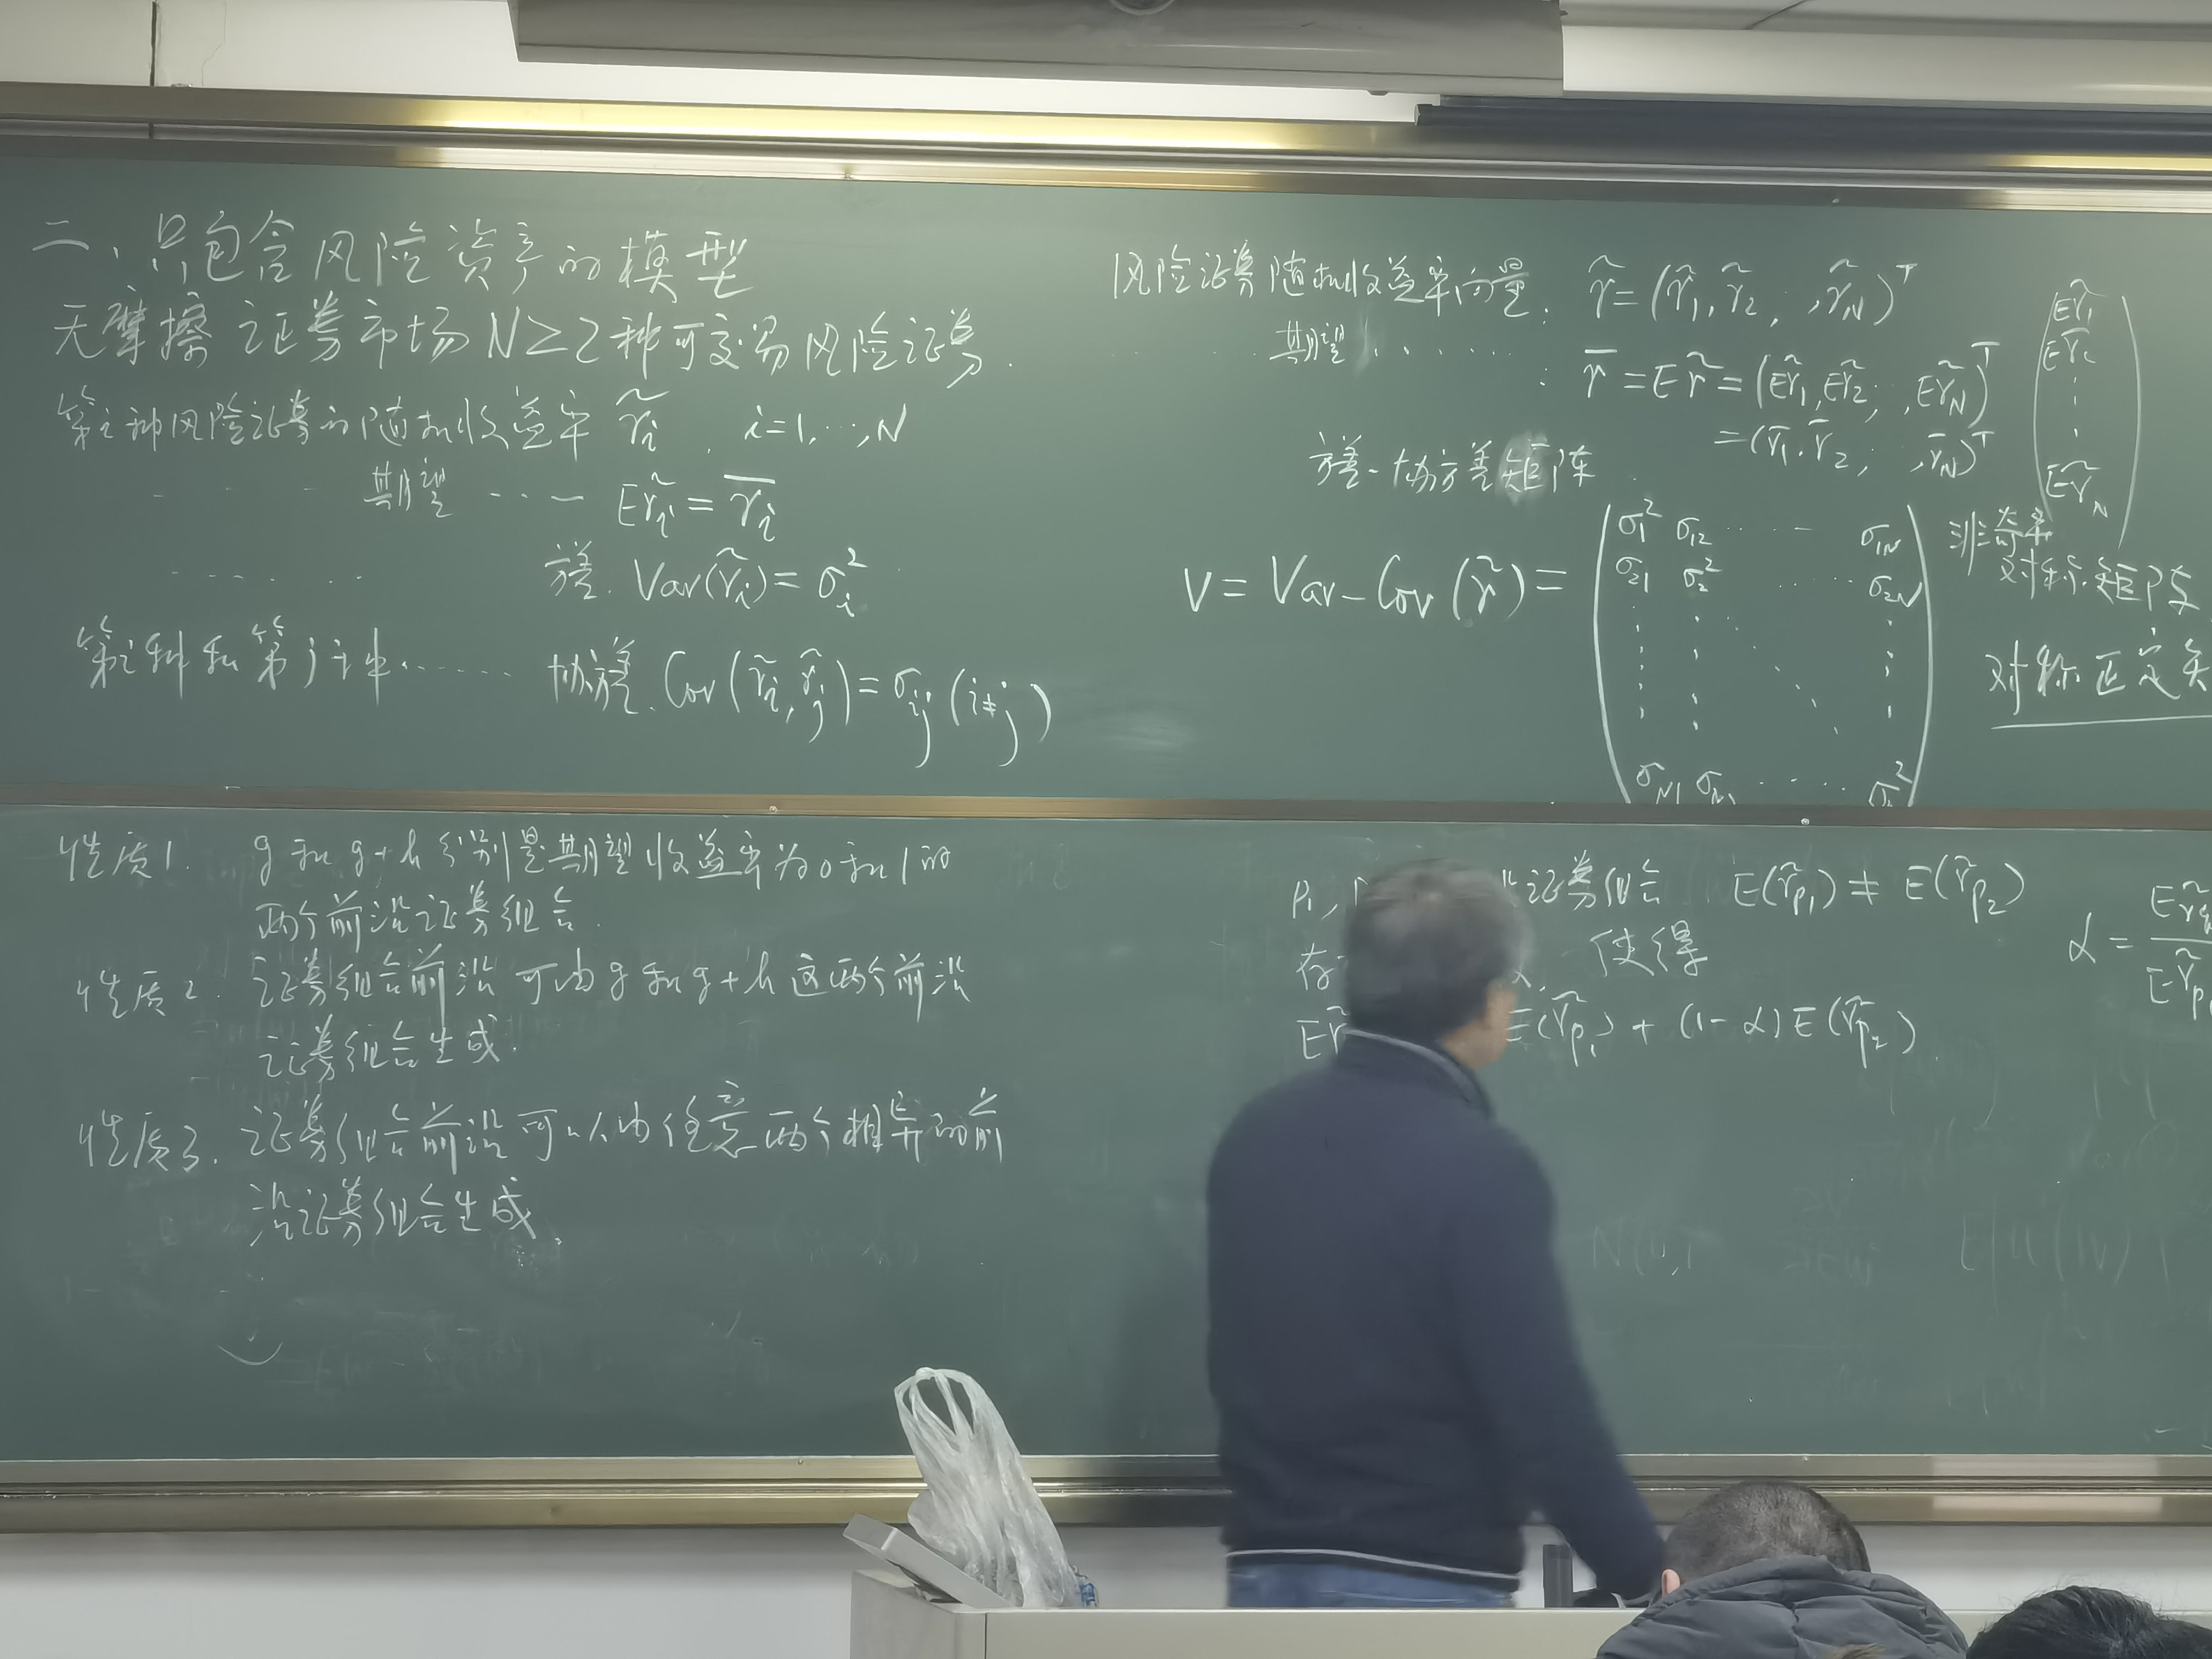 二、只包含风险资产的模型
无摩擦证券市场 N≥2种可交易风险证券.
第i种风险证券的随机收益率 r̃ᵢ, i=1,…,N
期望 Er̃ᵢ = r̄ᵢ
方差. Var(r̃ᵢ) = σᵢ²
第i种和第j种…… 协方差. Cov(r̃ᵢ, r̃ⱼ) = σᵢⱼ (i≠j)
风险证券随机收益率向量: r̃ = (r̃₁, r̃₂, , r̃_N)ᵀ
期望 …… : r̄ = Er̃ = (Er̃₁, Er̃₂, , Er̃_N)ᵀ
= (r̄₁, r̄₂, , r̄_N)ᵀ
Er̃₁
Er̃₂
⋮
Er̃_N
方差-协方差矩阵
V = Var-Cov(r̃) =
σ₁² σ₁₂ …… σ₁N
σ₂₁ σ₂² …… σ₂N
σ_N1 …… 
非奇异
对称矩阵
对称正定
性质1. g和g+h分别是期望收益率为0和1的
两个前沿证券组合.
性质2. 证券组合前沿可由g和g+h这两个前沿
证券组合生成.
性质3. 证券组合前沿可以由任意两个相异的前
沿证券组合生成.
P₁, 证券组合 E(r̃p₁) ≠ E(r̃p₂)
存 α, 使得
E(r̃p₁) + (1-α)E(r̃p₂).
α =